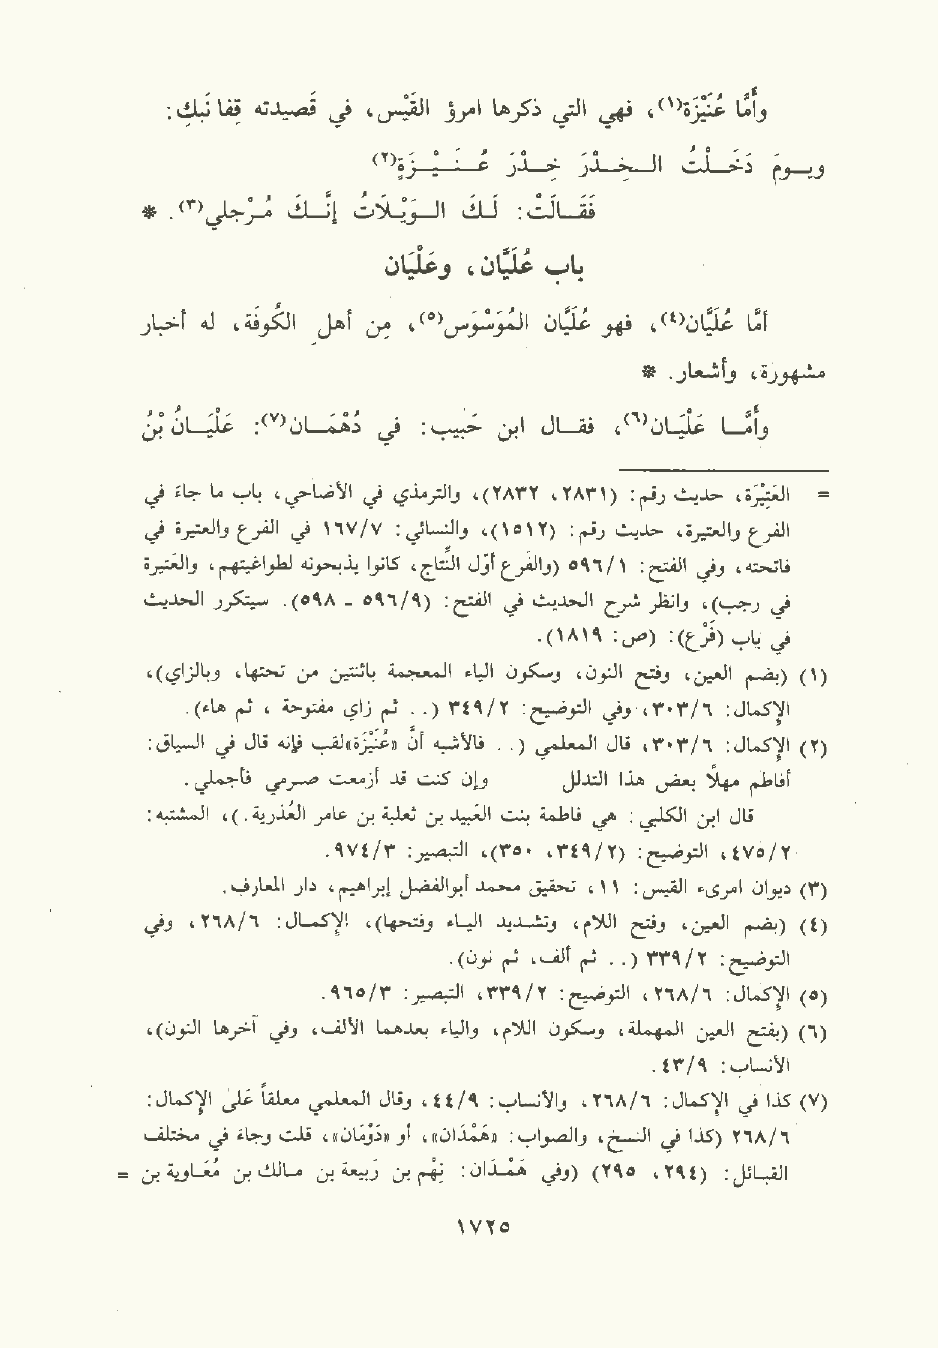 وأَمّا عُنَيْزة(١)، فهي التي ذكرها امرؤ القَيْس، في قَصيدته قِفا نَبكِ:
ويـوم دَخَـلْتُ الـخِـدْرَ خِـدْرَ عُـنَـيْـزَةٍ(٢)
فَقَـالَتْ: لَـكَ الـوَيْلاتُ إِنَّـكَ مُـرْجلي(٣). *
باب عُلَيَّان، وعَلْيَان
أَمّا عُلَيَّان(٤)، فهو عُلَيَّان المُوَسْوَس(٥)، من أهل الكُوفَة، له أخبار
مشهورة، وأشعار. *
وأَمّـا عَلْيَـان(٦)، فقـال ابن حَبيب: في دُهْمَـان(٧): عَلْيَـانُ بْنُ
= العَتِيْرَة، حديث رقم: (٢٨٣١، ٢٨٣٢)، والترمذي في الأضاحي، باب ما جاء في
الفرع والعتيرة، حديث رقم: (١٥١٢)، والنسائي: ١٦٧/٧ في الفرع والعتيرة في
فاتحته، وفي الفتح: ٥٩٦/١ (والفَرع أوّل النَّتاج، كانوا يذبحونه لطواغيتهم، والعَتيرة
في رجب)، وانظر شرح الحديث في الفتح: (٥٩٦/٩ - ٥٩٨). سيتكرر الحديث
في باب (فَرْع): (ص: ١٨١٩).
(١) (بضم العين، وفتح النون، وسكون الياء المعجمة باثنتين من تحتها، وبالزاي)،
الإكمال: ٣٠٣/٦، وفي التوضيح: ٣٤٩/٢ (. . ثم زاي مفتوحة ، ثم هاء).
(٢) الإكمال: ٣٠٣/٦، قال المعلمي (. . فالأشبه أنّ «عُنَيْزة»لقب فإنه قال في السياق:
أفاطم مهلاً بعض هذا التدلل وإن كنت قد أزمعت صرمي فأجملي.
قال ابن الكلبي: هي فاطمة بنت العُبَيد بن ثعلبة بن عامر العُذرية.)، المشتبه:
٤٧٥/٢، التوضيح: (٣٤٩/٢، ٣٥٠)، التبصير: ٩٧٤/٣.
(٣) ديوان امرىء القيس: ١١، تحقيق محمد أبوالفضل إبراهيم، دار المعارف.
(٤) (بضم العين، وفتح اللام، وتشـديد اليـاء وفتحها)، الإكمـال: ٢٦٨/٦، وفي
التوضيح: ٣٣٩/٢ (. . ثم ألف، ثم نون).
(٥) الإكمال: ٢٦٨/٦، التوضيح: ٣٣٩/٢، التبصير: ٩٦٥/٣.
(٦) (بفتح العين المهملة، وسكون اللام، والياء بعدهما الألف، وفي آخرها النون)،
الأنساب: ٤٣/٩.
(٧) كذا في الإكمال: ٢٦٨/٦، والأنساب: ٤٤/٩، وقال المعلمي معلقاً علَى الإكمال:
٢٦٨/٦ (كذا في النسخ، والصواب: «هَمْدَان»، أو «ذَوْمَان»، قلت وجاء في مختلف
القبائل: (٢٩٤، ٢٩٥) (وفي هَمْـدَان: نِهْم بن رَبيعة بن مـالك بن مُعَـاوية بن =
١٧٢٥